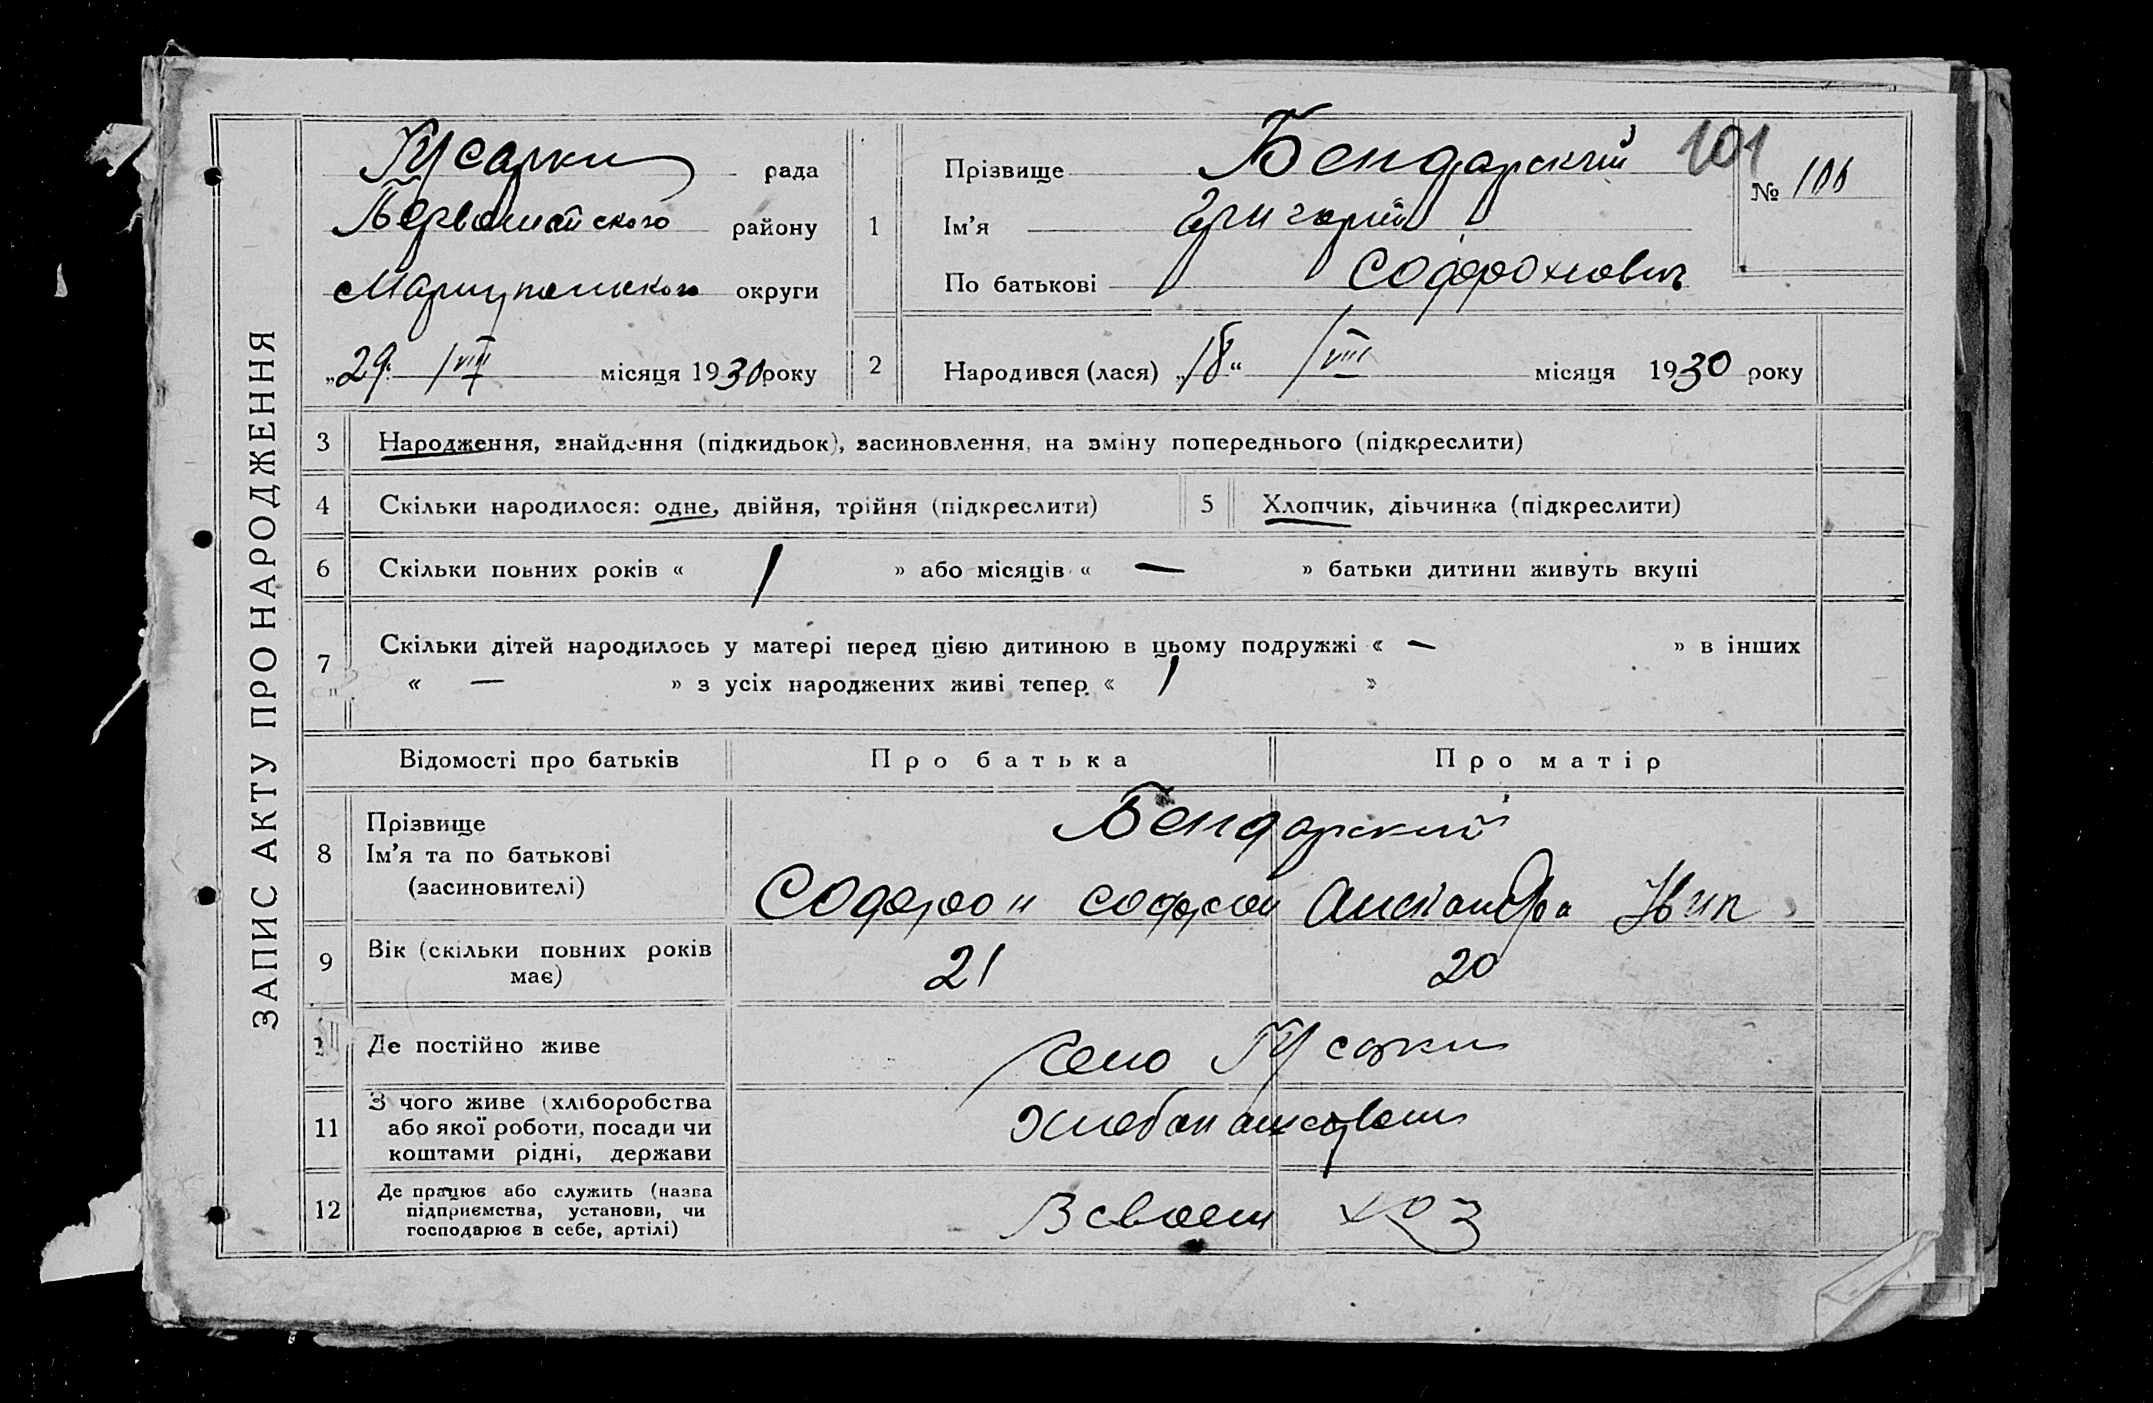 ЗАПИС АКТУ ПРО НАРОДЖЕННЯ
Гусарки рада
Первомайского району
Мариупольского округи
„29“ VIII місяця 1930 року
101
№
1 Прізвище Бендарский
Ім’я Григорий
По батькові Софронович
2 Народився (лася) „18“ VIII місяця 1930 року
3 Народження, знайдення (підкидьок), засиновлення, на зміну попереднього (підкреслити)
4 Скільки народилося: одне, двійня, трійня (підкреслити) 5 Хлопчик, дівчинка (підкреслити)
6 Скільки повних років « 1 » або місяців « — » батьки дитини живуть вкупі
7 Скільки дітей народилось у матері перед цією дитиною в цьому подружжі « — » в інших
« — » з усіх народжених живі тепер « 1 »
Відомості про батьків Про батька Про матір
8 Прізвище
Ім’я та по батькові
(засиновителі)
Бендарский
Софрон Софрон Александра
9 Вік (скільки повних років
має)
21 20
Де постійно живе
Село Гусарки
11 З чого живе (хліборобства
або якої роботи, посади чи
коштами рідні, держави
Хлебопашеством
12 Де працює або служить (назва
підприємства, установи, чи
господарює в себе, артілі)
В своем хоз